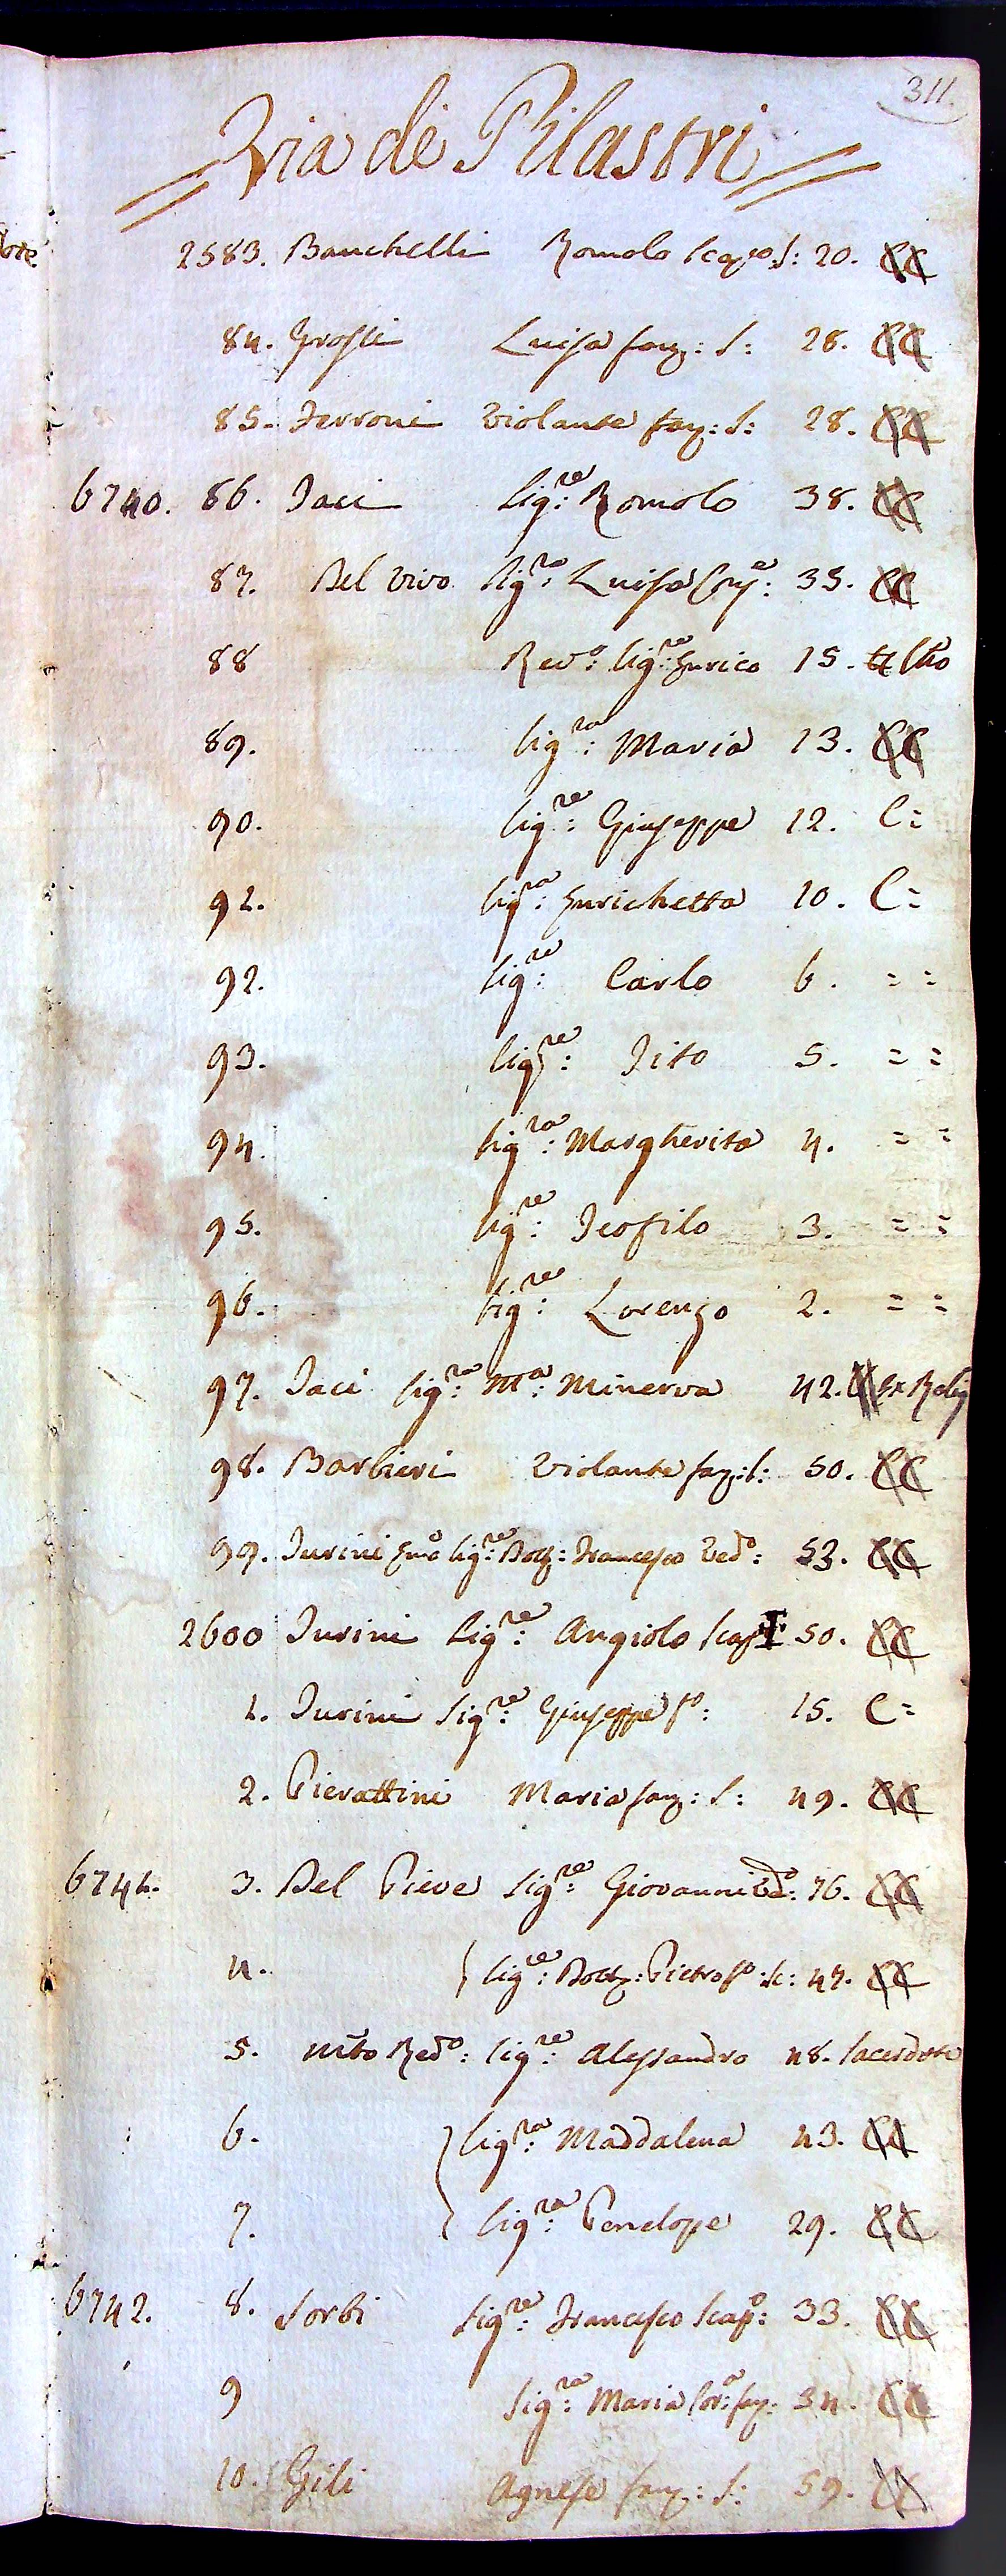 311.
Via dè Pilastri
2583. Banchelli Romolo Scapo: S: 20. CC
84. Grossi Luisa fan: S: 28. CC
85. Ferroni Violante fan: S: 28. CC
6740. 86. Taci Sigre: Romolo 38. CC
87. Del Vivo Sigra: Luisa 35. CC
88 Revo: Sigre: Enrico 15.
89. Sigra: Maria 13. CC
90. Sigre: Giuseppe 12. C=
92. Sigra: Enrichetta 10. C=
92. Sigre: Carlo 6. = =
93. Sigre: Tito 5. = =
94. Sigra: Margherita 4. = =
95. Sigre: Teofilo 3. = =
96. Sigre: Lorenzo 2. = =
97. Taci Sigra: Ma: Minerva 42. CC Ex Relig
98. Barbieri Violante fan: S: 50. CC
99. Turini Sigre: Dott: Francesco Vedo: 53. CC
2600 Turini Sigre: Angiolo Scap 50. CC
1. Turini Sigre: Giuseppe fo: 15. C=
2. Pierattini Maria fan: S: 49. CC
6741. 3. Del Pieve Sigre: Giovanni Vedo: 76. CC
4. Sigre: Dott: Pietro fo: Sc: 47. CC
5. Molto Redo: Sigre: Alessandro 48. Sacerdote
6. Sigra: Maddalena 43. CC
7. Sigra: Penelope 29. CC
6742. 8. Sorbi Sigre: Francesco Scapo: 33. CC
9 Sigra: Maria Sora: fan: 34. CC
10. Gili Agnese fan: S: 59. CC